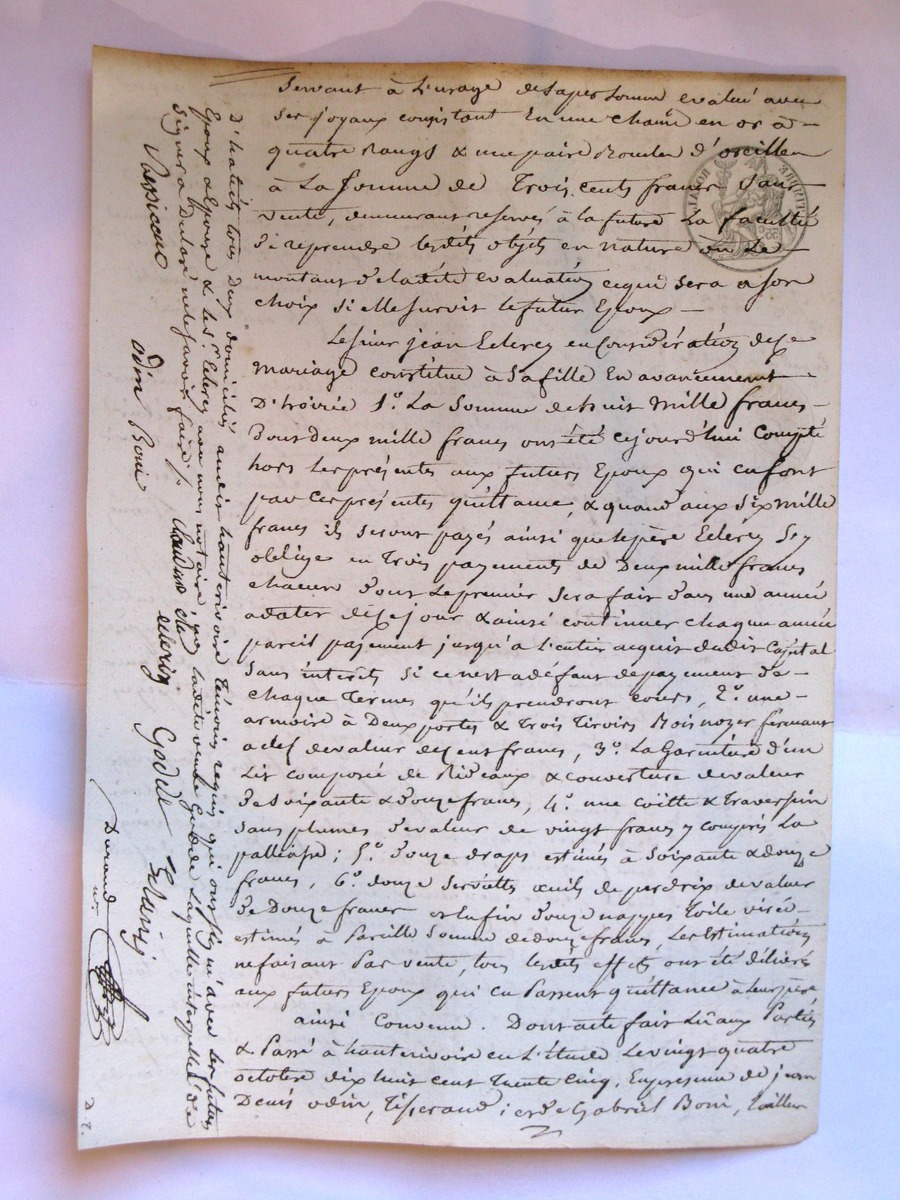 servant à L'usage de sa personne evalué avec
ses joyaux consistant En une chaine en or à
quatre Rangs & une paire Boucles d'oreilles
à La Somme de Trois cents francs Sans
vente, demeurant reservés à la future La faculté
de reprendre lesdits objets en nature ou Le
montant de ladite evaluation ce qui sera a son
choix si elle survit le futur Epoux —
Le sieur jean Eclercy en Considération dece
mariage constitue à Sa fille En avancement
D'hoirie 1º. La Somme de huit mille francs
Dont deux mille francs ont été cejourd'hui Compté
hors les présentes aux futurs Epoux qui en font
par ces présentes quittance, & quand aux six mille
francs ils seront payés ainsi que le père Eclercy s'y
oblige en Trois payements de Deux mille francs
chacun Dont Le premier sera fait Dans une année
adater de ce jour & ainsi continuer chaque année
pareil payement jusqu'a L'entier acquit dudit Capital
Sans intérêts Si ce n'est a défaut de payement de
chaque Termes qu'ils prendront cours, 2º. une
armoire à Deux portes & Trois Tiroirs Bois noyer fermant
a clef de valeur de cent francs, 3º. La Garniture d'un
Lit composée de Rideaux & couverture de valeur
de soixante & douze francs, 4º. une coitte & Traversin
sans plumes de valeur de vingt francs y compris La
palliasse; 5º. Douze draps estimés à Soixante & douze
francs, 6º. douze serviettes œuils de perdrix de valeur
de Douze francs et Enfin Douze nappes toile
estimés à Pareille Somme de douze francs, Les Estimations
ne faisant Pas vente, tous lesdits effets ont été délivrés
aux futurs Epoux qui en Passent quittance à Leur père
ainsi Convenu. Dont acte fait Lû aux Parties
& Passé à hauterivoire en L'étude Le vingt quatre
octobre dix huit cent Trente Cinq, En presence de jean
Denis odin, Tisserand; et de Gabriel Boni, Tailleur
D'habits tous Deux domiciliés audit hauterivoire Témoins requis qui ont signé avec les futurs
Epoux a Epouse & les Sr. Eclercy non nous notaire, que ladite veuve Laquelle interpellée de
Signer a Déclaré ne le savoir faire
odin Boni
eclercy Godde
Durand
nre
D 2.